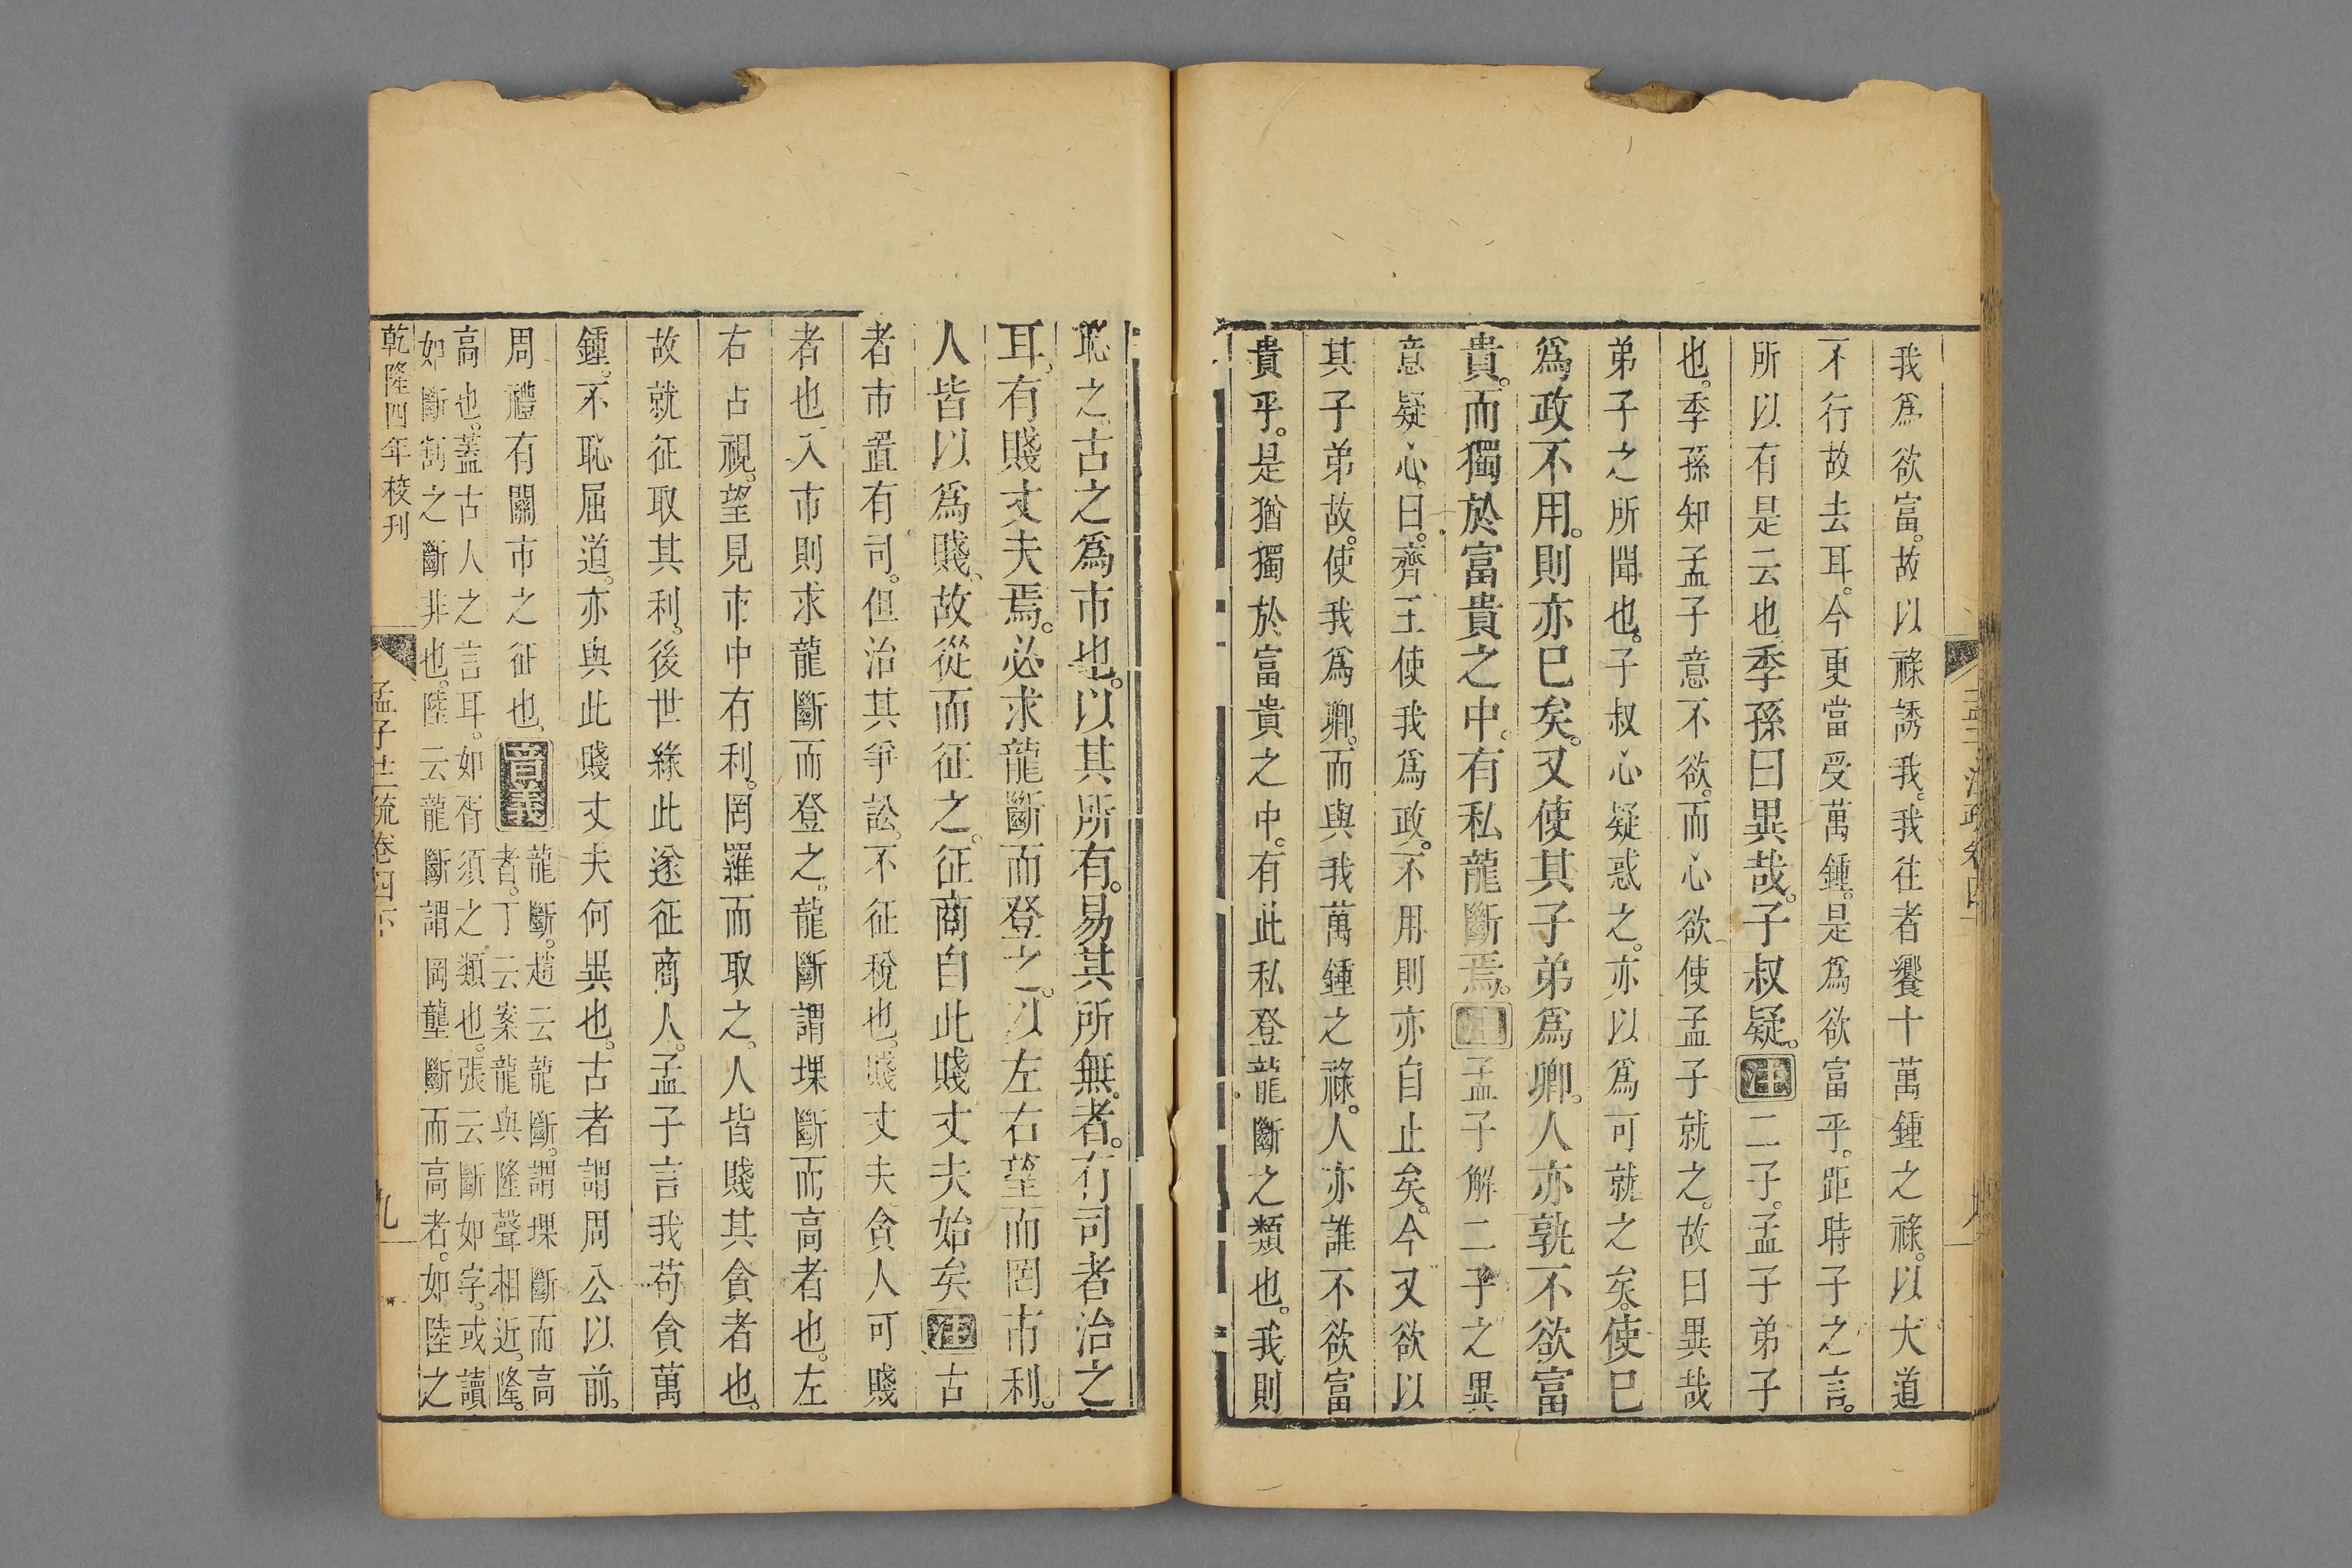 我爲欲富。故以祿誘我。我往者饗十萬鍾之祿。以大道
不行故去耳。今更當受萬鍾。是爲欲富乎。距時子之言。
所以有是云也季孫曰異哉。子叔疑。注二子。孟子弟子
也。季孫知孟子意不欲。而心欲使孟子就之。故曰異哉
弟子之所聞也。子叔心疑惑之。亦以爲可就之矣。使已
爲政不用。則亦已矣。又使其子弟爲卿。人亦孰不欲富
貴。而獨於富貴之中。有私龍斷焉。注孟子解二子之異
意疑心。曰。齊王使我爲政。不用則亦自止矣。今又欲以
其子弟故。使我爲卿。而與我萬鍾之祿。人亦誰不欲富
貴乎。是猶獨於富貴之中。有此私登龍斷之類也。我則
恥之古之爲市也。以其所有。易其所無。者。有司者治之
耳。有賤丈夫焉。必求龍斷而登之。以左右望而罔市利。
人皆以爲賤、故從而征之。征商自此賤丈夫始矣注古
者市置有司。但治其爭訟。不征稅也。賤丈夫貪人可賤
者也、入市則求龍斷而登之。龍斷謂堁斷而高者也。左
右占視。望見市中有利。罔羅而取之。人皆賤其貪者也。
故就征取其利。後世緣此遂征商人。孟子言我苟貪萬
鍾。不恥屈道。亦與此賤丈夫何異也。古者謂周公以前。
周禮有關市之征也。音義龍斷。趙云龍斷。謂堁斷而高
者。丁云案龍與隆聲相近。隆。
高也。蓋古人之言耳。如胥須之類也。張云斷如字。或讀
如斷割之斷非也。陸云龍斷謂岡壟斷而高者。如陸之
乾隆四年校刊
孟子注疏卷四下
九